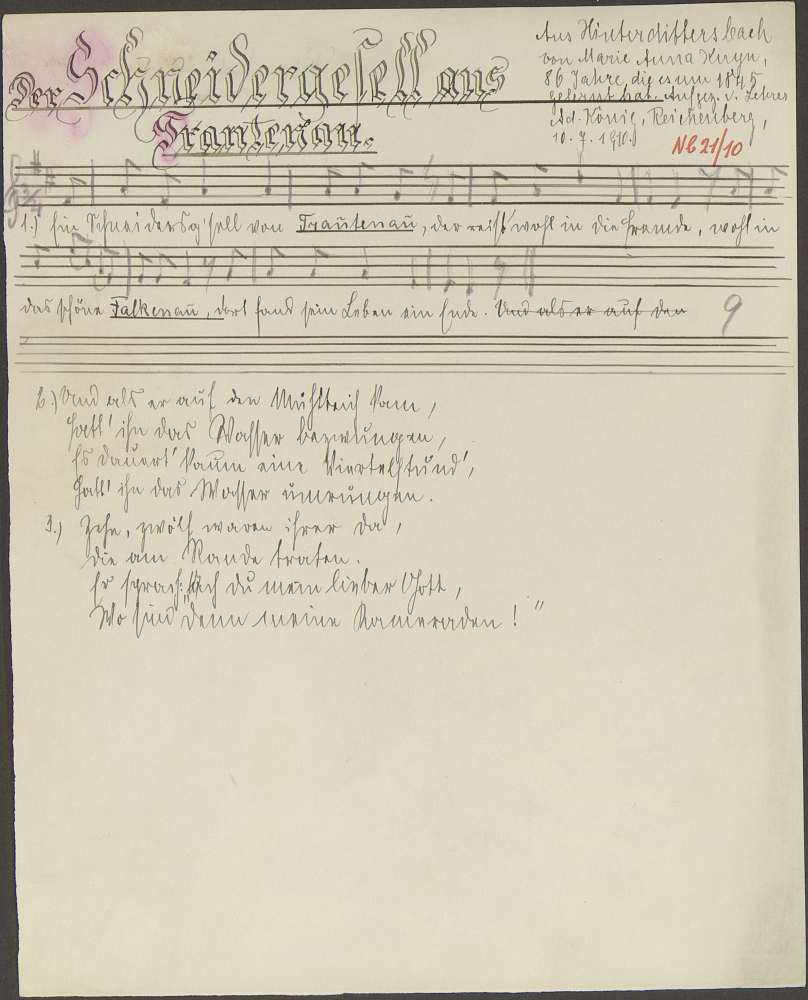 Der Schneidergesell aus
Trautenau.
Aus Hinterdittersbach
von Marie Anna
86 Jahre, die es um 1845
gelernt hat. Aufgez. v. Lehrer
Ad. König, Reichenberg,
10. 7. 1910.
NB 21/10
1.) Ein Schneidersg'sell von Trautenau, der reist wohl in die Fremde, wohl in
das schöne Falkenau, dort fand sein Leben ein Ende. Und als er auf den
9
2.) Und als er auf den Mühlteich kam,
Hatt' ihn das Wasser bezwungen,
Es dauert' kaum eine Viertelstund',
Hatt' ihn das Wasser umrungen.
3.) Zehn, zwölf waren ihrer da,
die am Rande traten.
Er sprach: "Ach du mein lieber Gott,
Wo sind denn meine Kameraden!"